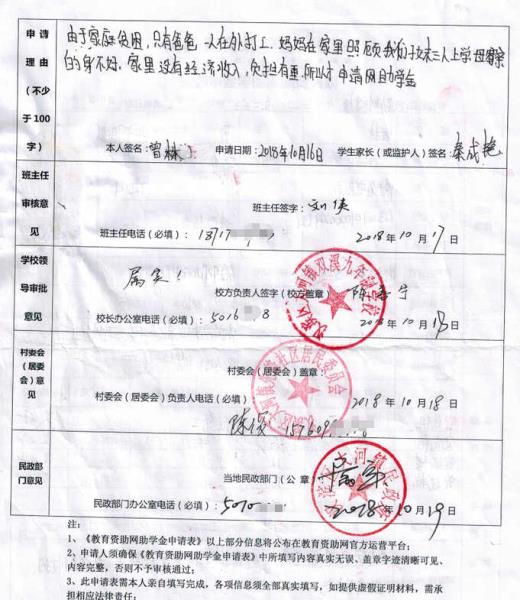 申请理由(不少于100字)
由于家庭贫困,只有爸爸一人在外打工,妈妈在家里照顾我们姊妹三人上学
的身不好,家里没有经济收入,负担有重,所以才申请网助学金
本人签名: 曾林 申请日期: 2018年10月16日 学生家长(或监护人)签名:
班主任审核意见
班主任签字: 刘侠
班主任电话(必填): 1817 2018年10月17日
学校领导审批意见
属实!
校方负责人签字(校方盖章)
校长办公室电话(必填): 5016 8 2018年10月18日
村委会(居委会)意见
村委会(居委会)盖章:
村委会(居委会)负责人电话(必填) 2018年10月18日
陈俊 157609
民政部门意见
当地民政部门(公章)
民政部门办公室电话(必填): 5010 2018年10月19日
注:
1、《教育资助网助学金申请表》以上部分信息将公布在教育资助网官方运营平台;
2、申请人须确保《教育资助网助学金申请表》中所填写内容真实无误、盖章字迹清晰可见、
内容完整,否则不予审核通过;
3、此申请表需本人亲自填写完成,各项信息须全部真实填写,如提供虚假证明材料,需承
担相应法律责任;